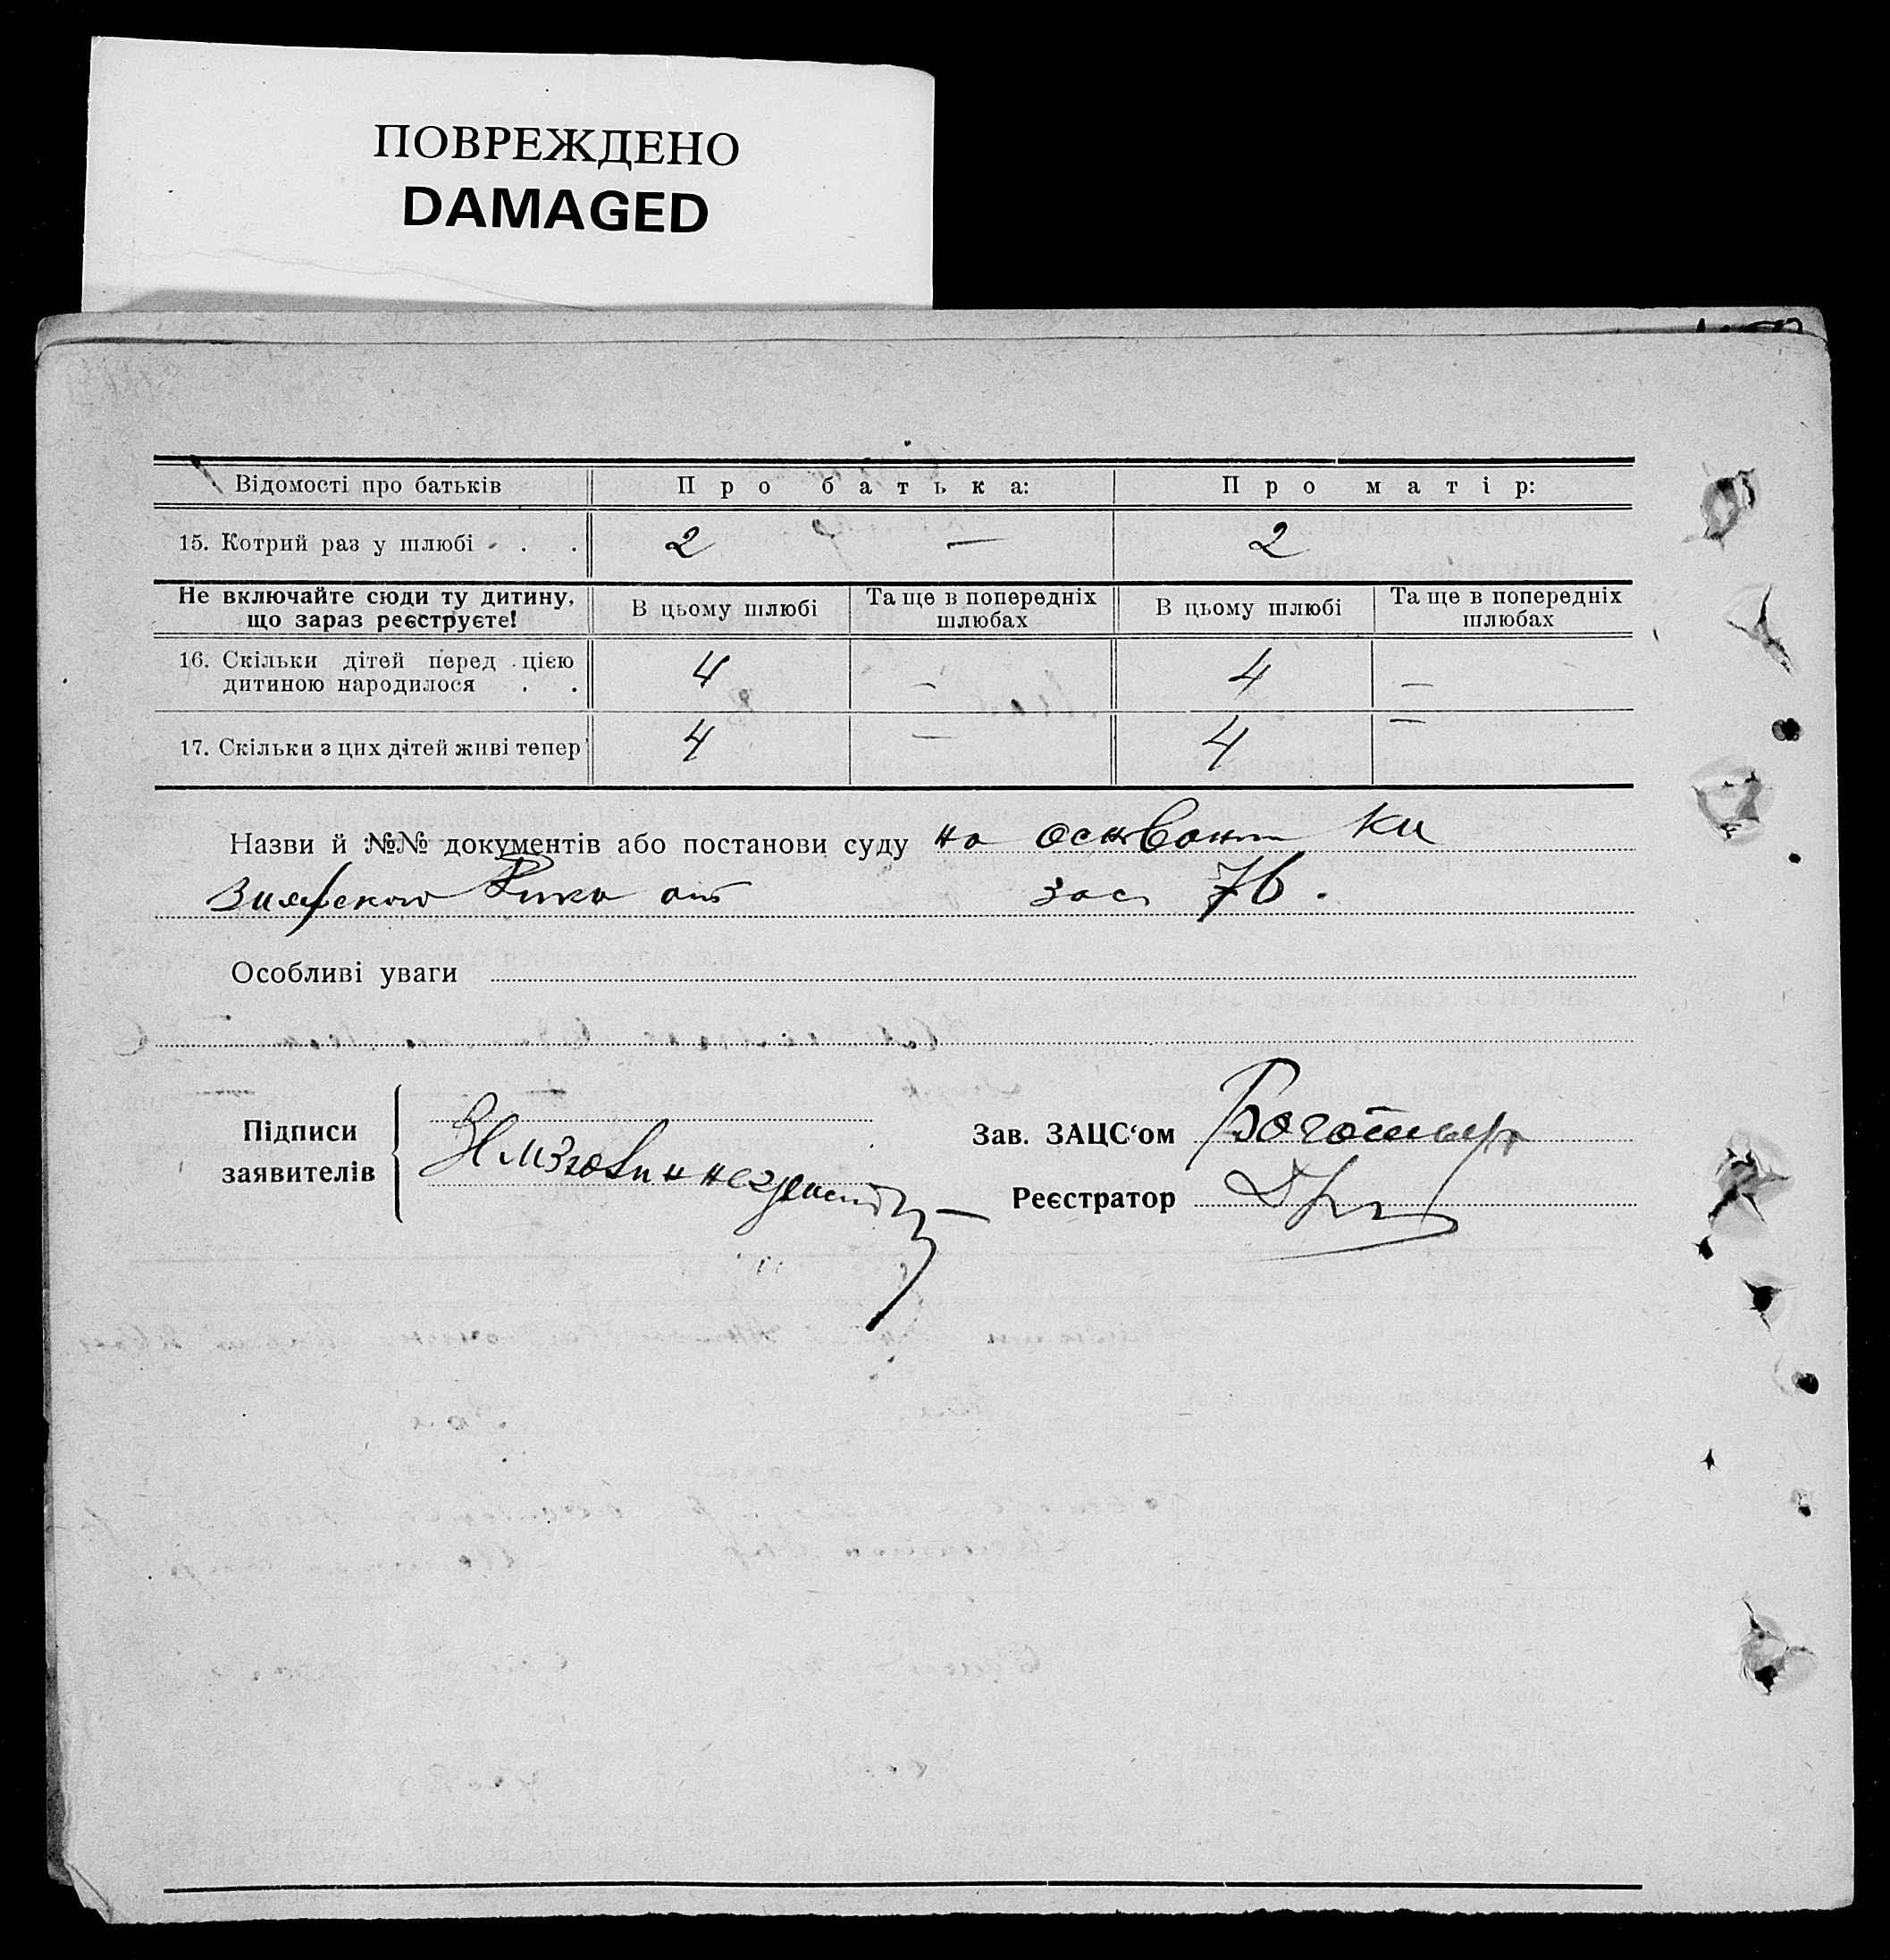 ПОВРЕЖДЕНО
DAMAGED
Відомості про батьків Про батька: Про матір:
15. Котрий раз у шлюбі . . 2 — 2
Не включайте сюди ту дитину, що зараз реєструєте! В цьому шлюбі Та ще в попередніх шлюбах В цьому шлюбі Та ще в попередніх шлюбах
16. Скільки дітей перед цією
дитиною народилося . . 4 — 4 —
17. Скільки з цих дітей живі тепер 4 — 4 —
Назви й №№ документів або постанови суду на
зас 76.
Особливі уваги
Підписи
заявителів
Зав. ЗАЦС‘ом
Реєстратор